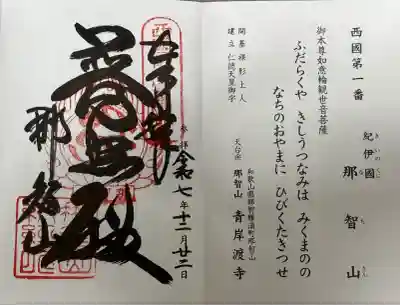 西國第一番
紀伊國 那智山
きいのくに なちさん
御本尊如意輪観世音菩薩
ふだらくや きしうつなみは みくまのの
なちのおやまに ひびくたきつせ
開基 裸形上人
建立 仁徳天皇御宇
和歌山県東牟婁郡那智勝浦町那智山
天台宗 那智山 青岸渡寺
参拝 令和七年十二月廿二日
普照殿
那智山